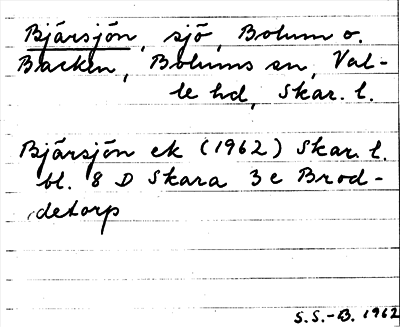 Bjärsjön, sjö, Bolum o.
Backen, Bolums sn, Val-
le hd, Skar. l.
Bjärsjön ek (1962) Skar. l.
bl. 8 D Skara 3 e Brod-
detorp
S.S.-B. 1962